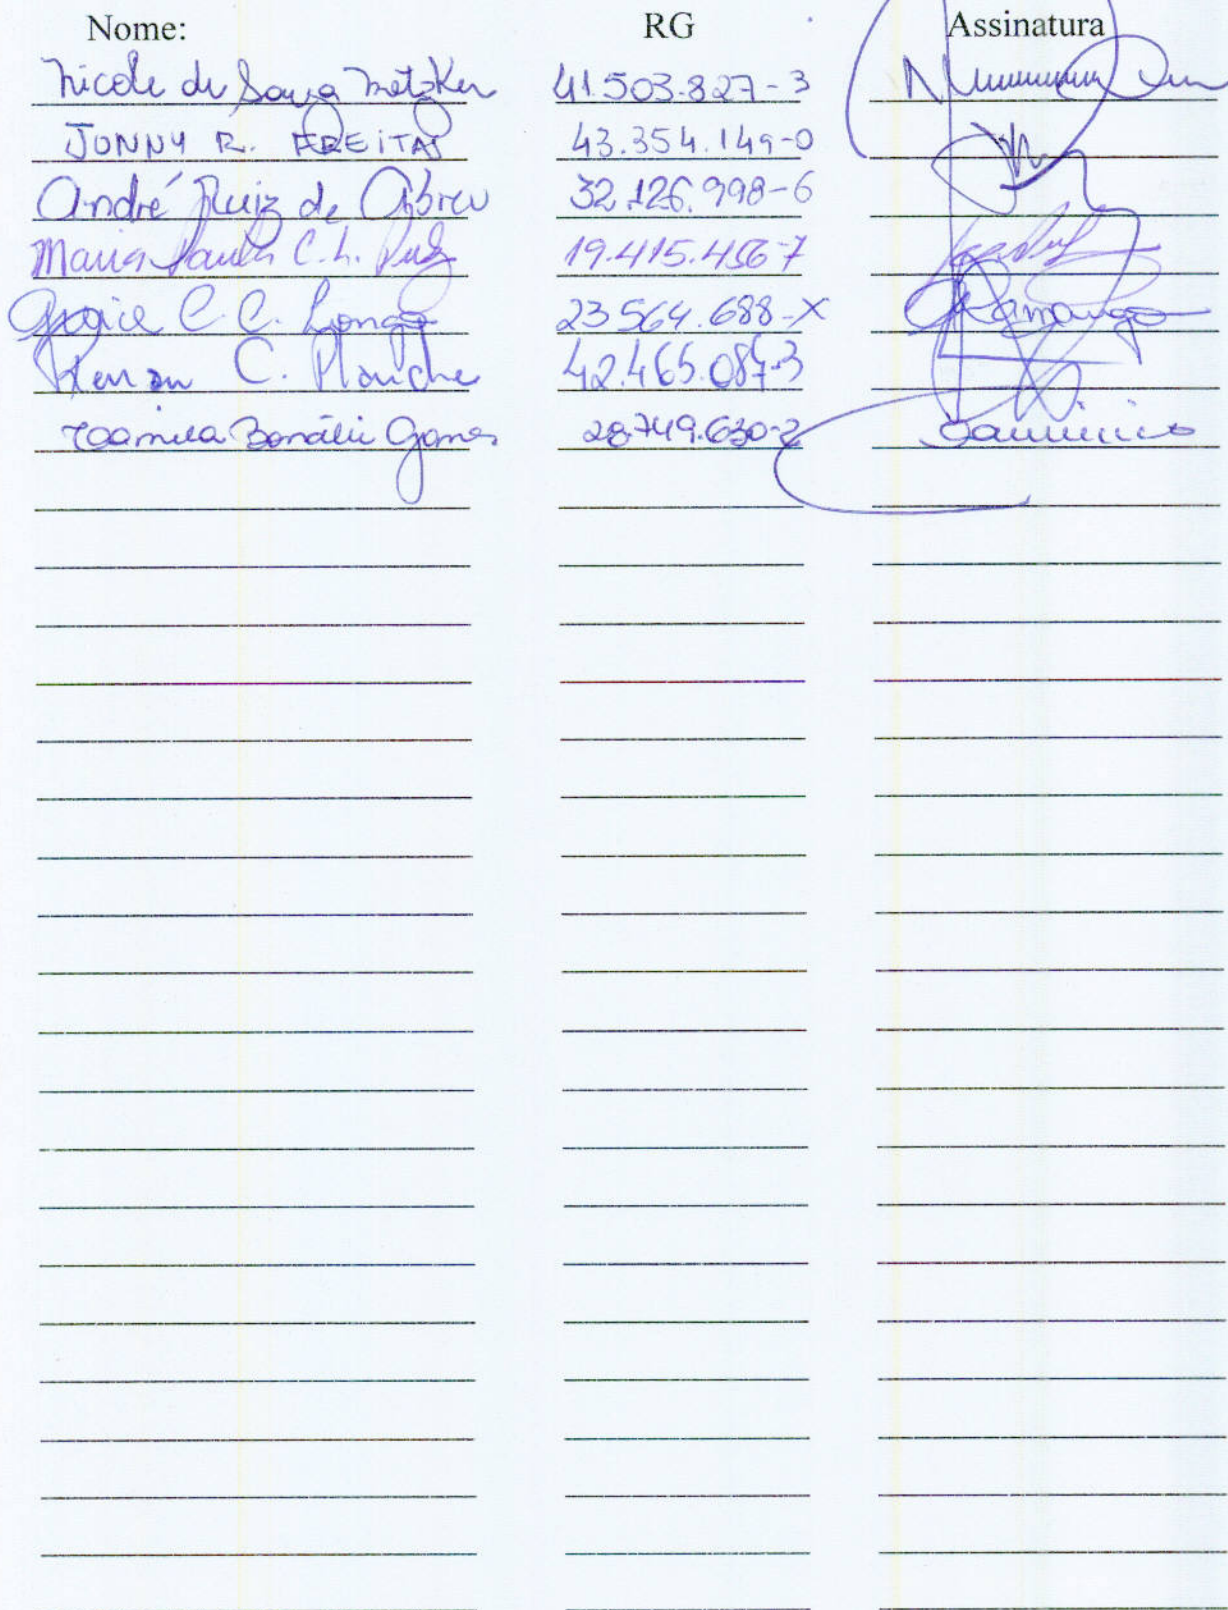 Nome: RG Assinatura
Nicole de Souza Metzker 41.503.827-3
JONNY R. FREITAS 43.354.149-0
André Ruiz de Abreu 32.126.998-6
Maria Paula C. L. 19.415.456-7
C. C. Longo 23564.688-X Camargo
Renan C. Planche 42.465.087-3
Camila Gomes 28.749.630-2